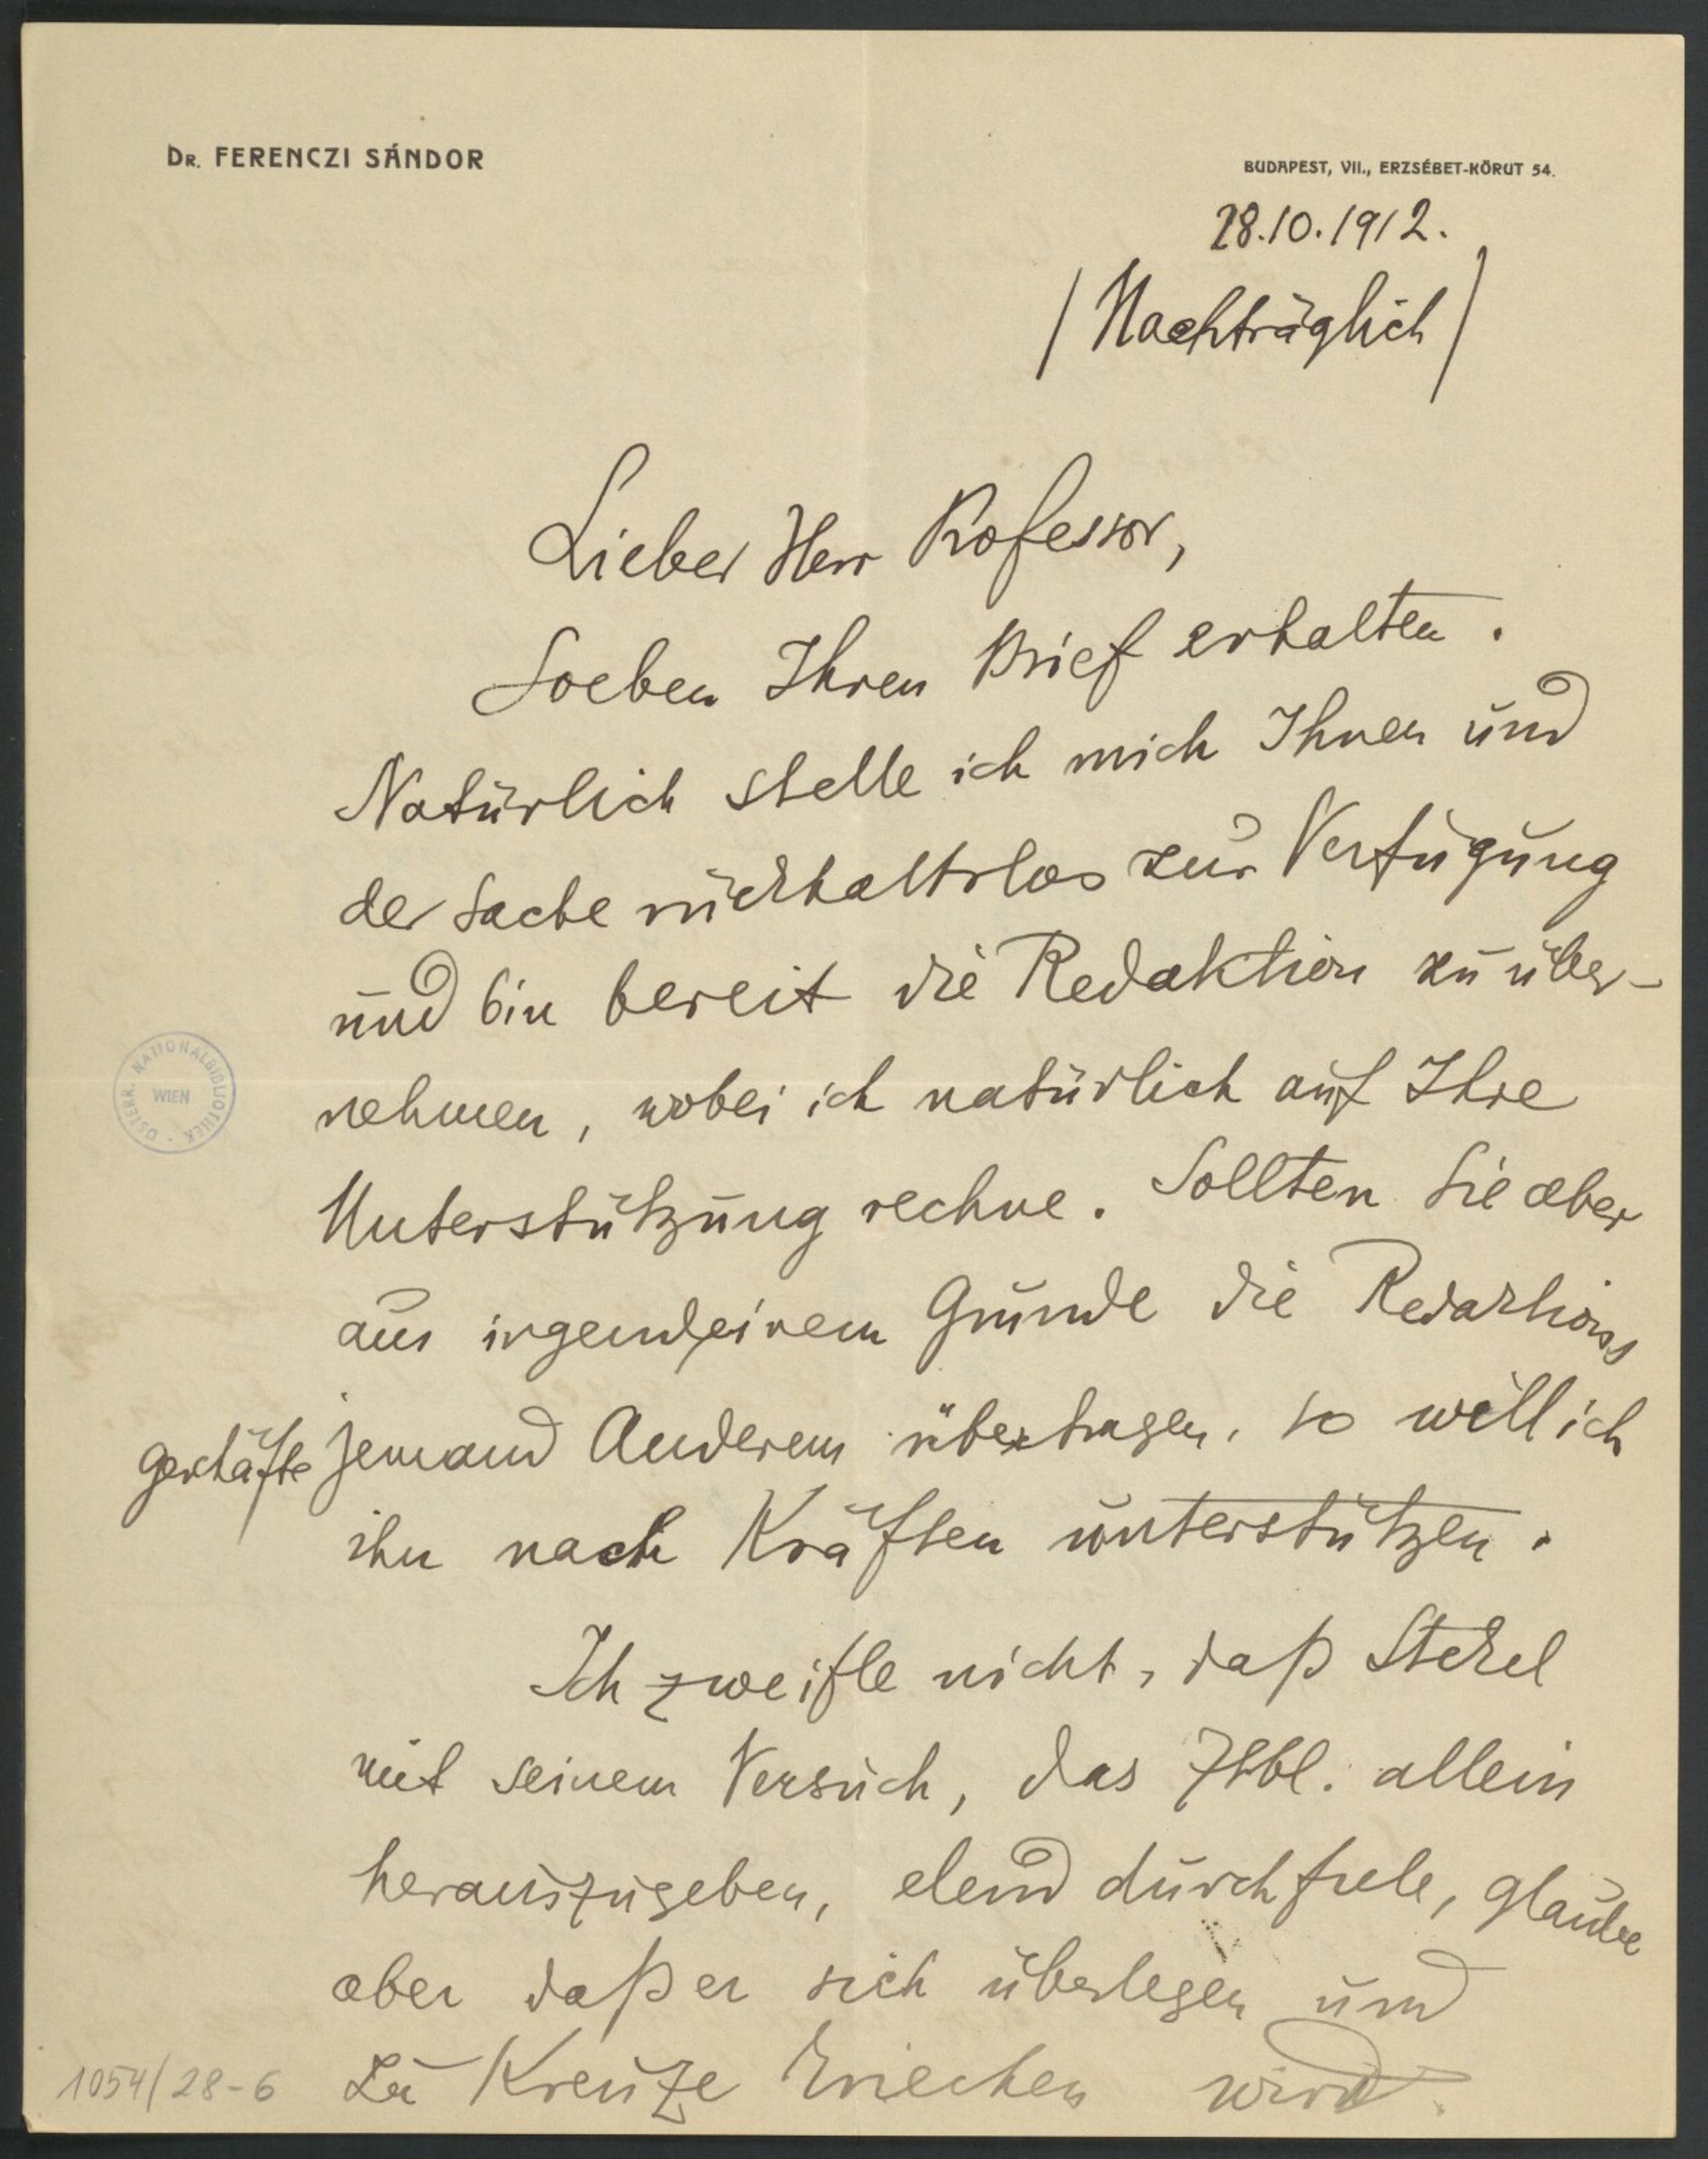 DR. FERENCZI SÁNDOR
BUDAPEST, VII., ERZSÉBET-KÖRUT 54.
28.10.1912.
/Nachträglich/
Lieber Herr Professor,
Soeben Ihren Brief erhalten.
Natürlich stelle ich mich Ihnen und
der Sache rückhaltslos zur Verfügung
und bin bereit die Redaktion zu über-
nehmen, wobei ich natürlich auf Ihre
Unterstützung rechne. Sollten Sie aber
aus irgendeinem Grunde die Redaktions
geschäfte jemand Anderem übertragen, so will ich
ihn nach Kräften unterstützen.
Ich zweifle nicht, daß Stekel
mit seinem Versuch, das Ztbl. allein
herauszugeben, elend durchfiele, glaube
aber daß er sich überlegen und
zu Kreuze kriechen wird.
ÖSTERR. NATIONALBIBLIOTHEK
WIEN
1054/28-6